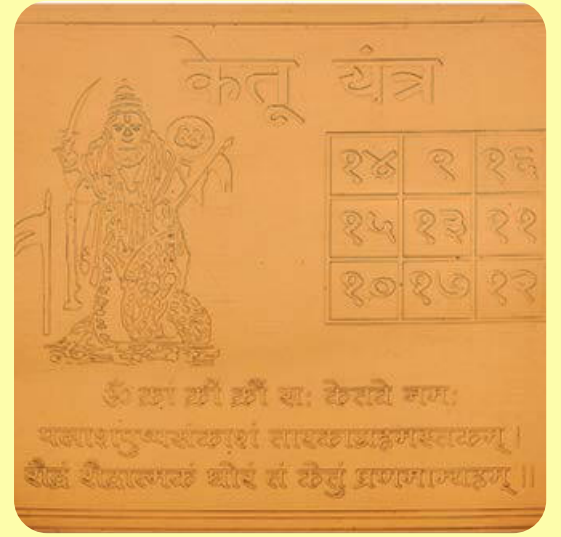 केतू यंत्र
१४ ९ १६
१५ १३ ११
१० १७ १२
ॐ क्रां क्रीं क्रौं सः केतवे नमः
पलाशपुष्पसंकाशं तारकाग्रहमस्तकम् ।
रौद्रं रौद्रात्मकं घोरं तं केतुं प्रणमाम्यहम् ॥